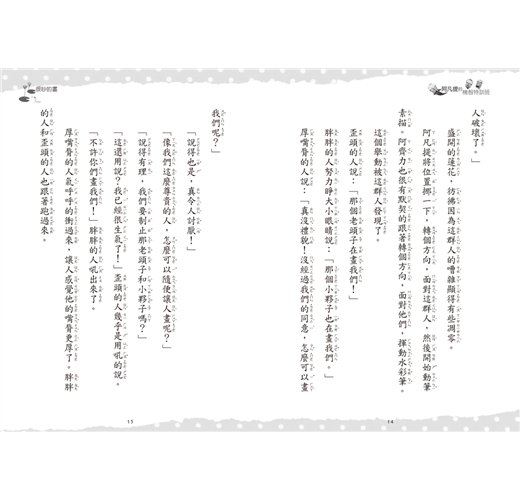 阿凡提的
機智特訓班
人破壞了。」
盛開的蓮花，彷彿因為這群人的嘈雜顯得有些凋零。
阿凡提將位置挪一下，轉個方向，面對這群人，然後開始動筆
素描。阿齊力也很有默契的跟著轉個方向，面對他們，揮動水彩筆。
這個舉動被這群人發現了。
歪頭的人說：「那個老頭子在畫我們！」
胖胖的人努力睜大小眼睛說：「那個小夥子也在畫我們。」
厚嘴脣的人說：「真沒禮貌！沒經過我們的同意，怎麼可以畫
14
很吵的畫
我們呢？」
「說得也是，真令人討厭！」
「像我們這麼尊貴的人，怎麼可以隨便讓人畫呢？」
「說得有理，我們要制止那老頭子和小夥子嗎？」
「這還用說？我已經很生氣了！」歪頭的人幾乎是用吼的說。
「不許你們畫我們！」胖胖的人吼出來了。
厚嘴脣的人氣呼呼的衝過來。讓人感覺他的嘴脣更厚了。胖胖
的人和歪頭的人也跟著跑過來。
15